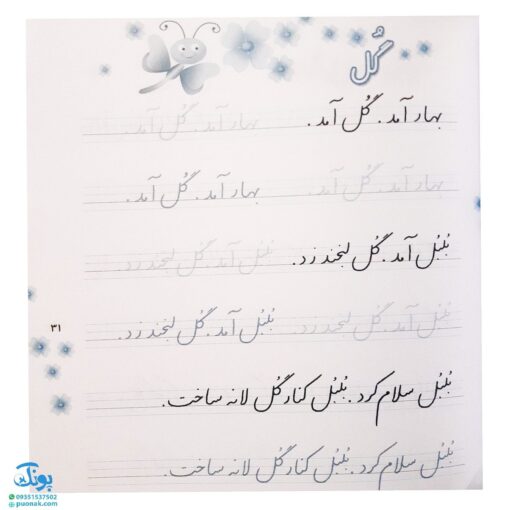 گُل
بهار آمد. گُل آمد. بهار آمد. گُل آمد.
بهار آمد. گُل آمد. بهار آمد. گُل آمد.
بُلبُل آمد. گُل لبخند زد. بُلبُل آمد. گُل لبخند زد.
بُلبُل آمد. گُل لبخند زد. بُلبُل آمد. گُل لبخند زد.
۳۱
بُلبُل سلام کرد. بُلبُل کنار گُل لانه ساخت.
بُلبُل سلام کرد. بُلبُل کنار گُل لانه ساخت.
پونک
09351537502
puonak.com